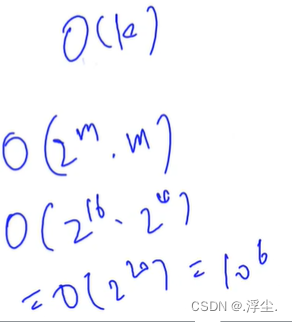 O(k)
O(2^m · m)
O(2^16 · 2^4)
= O(2^20) = 10^6
CSDN @.浮尘.